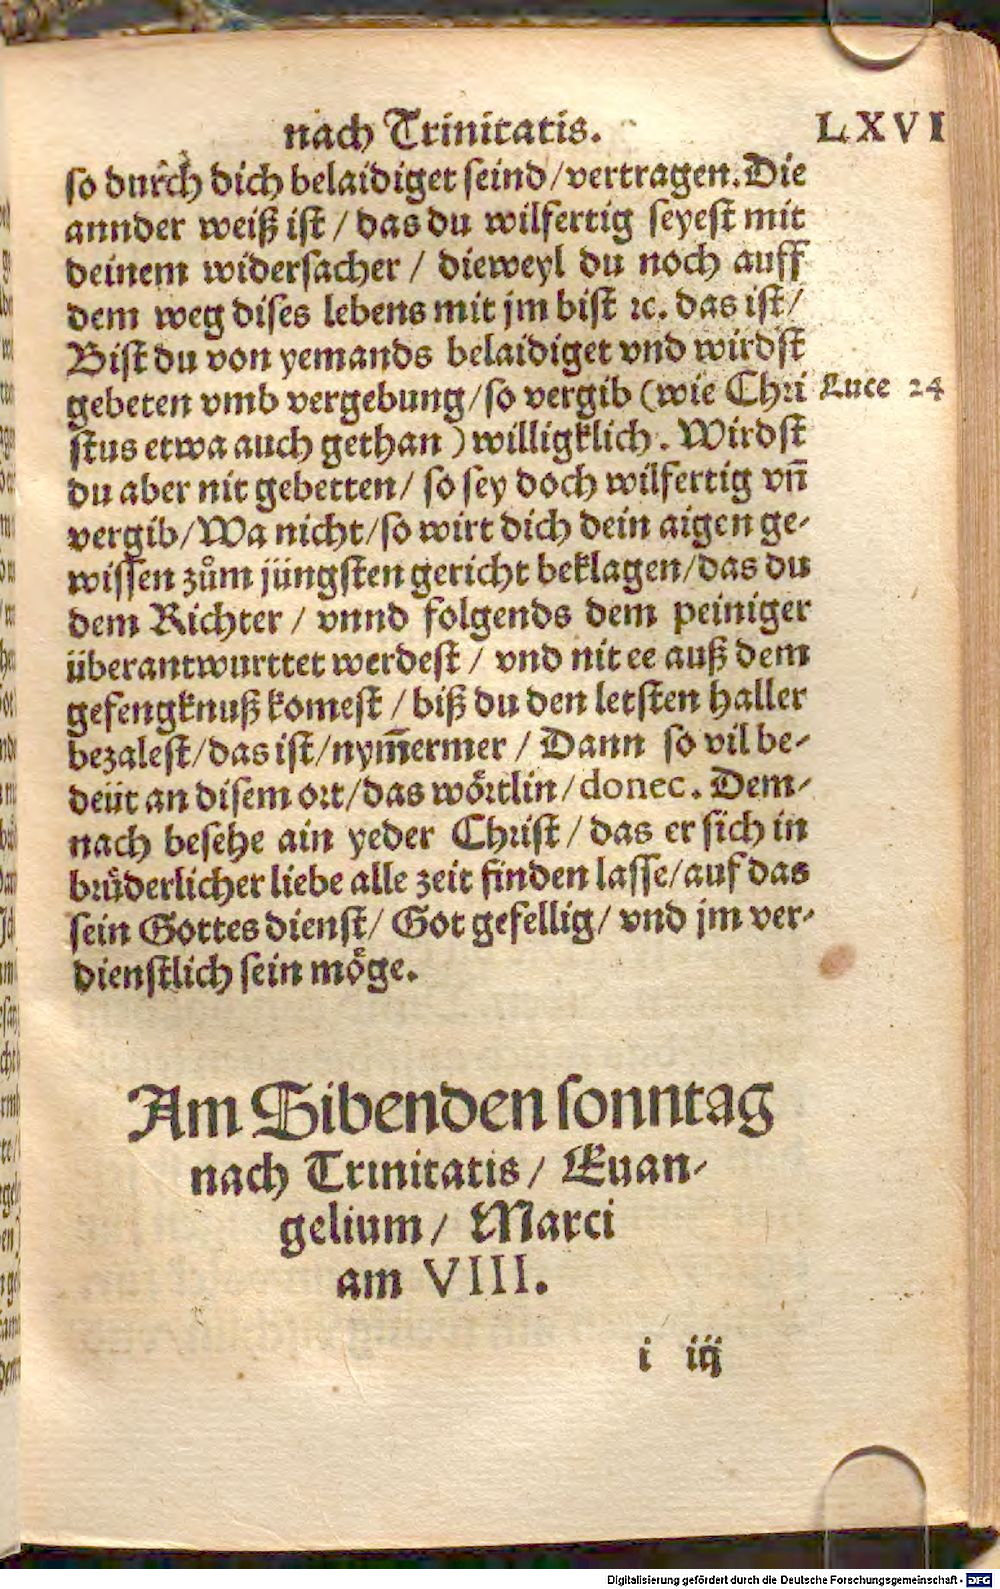 nach Trinitatis. LXVI
so durch dich belaidiget seind/vertragen. Die
annder weiß ist / das du wilfertig seyest mit
deinem widersacher / dieweyl du noch auff
dem weg dises lebens mit jm bist ꝛc. das ist/
Bist du von yemands belaidiget vnd wirdst
gebeten vmb vergebung/so vergib (wie Chri Luce 24
stus etwa auch gethan) willigklich. Wirdst
du aber nit gebetten/ so sey doch wilfertig vñ
vergib/Wa nicht/so wirt dich dein aigen ge-
wissen zům jüngsten gericht beklagen/das du
dem Richter / vnnd folgends dem peiniger
überantwurttet werdest / vnd nit ee auß dem
gefengknuß komest / biß du den letsten haller
bezalest/das ist/nym̄ermer / Dann so vil be-
deüt an disem ort/das wörtlin/donec. Dem-
nach besehe ain yeder Christ / das er sich in
brůderlicher liebe alle zeit finden lasse/auf das
sein Gottes dienst/ Got gefellig/ vnd jm ver-
dienstlich sein möge.
Am Sibenden sonntag
nach Trinitatis / Euan-
gelium / Marci
am VIII.
i iij
Digitalisierung gefördert durch die Deutsche Forschungsgemeinschaft - DFG